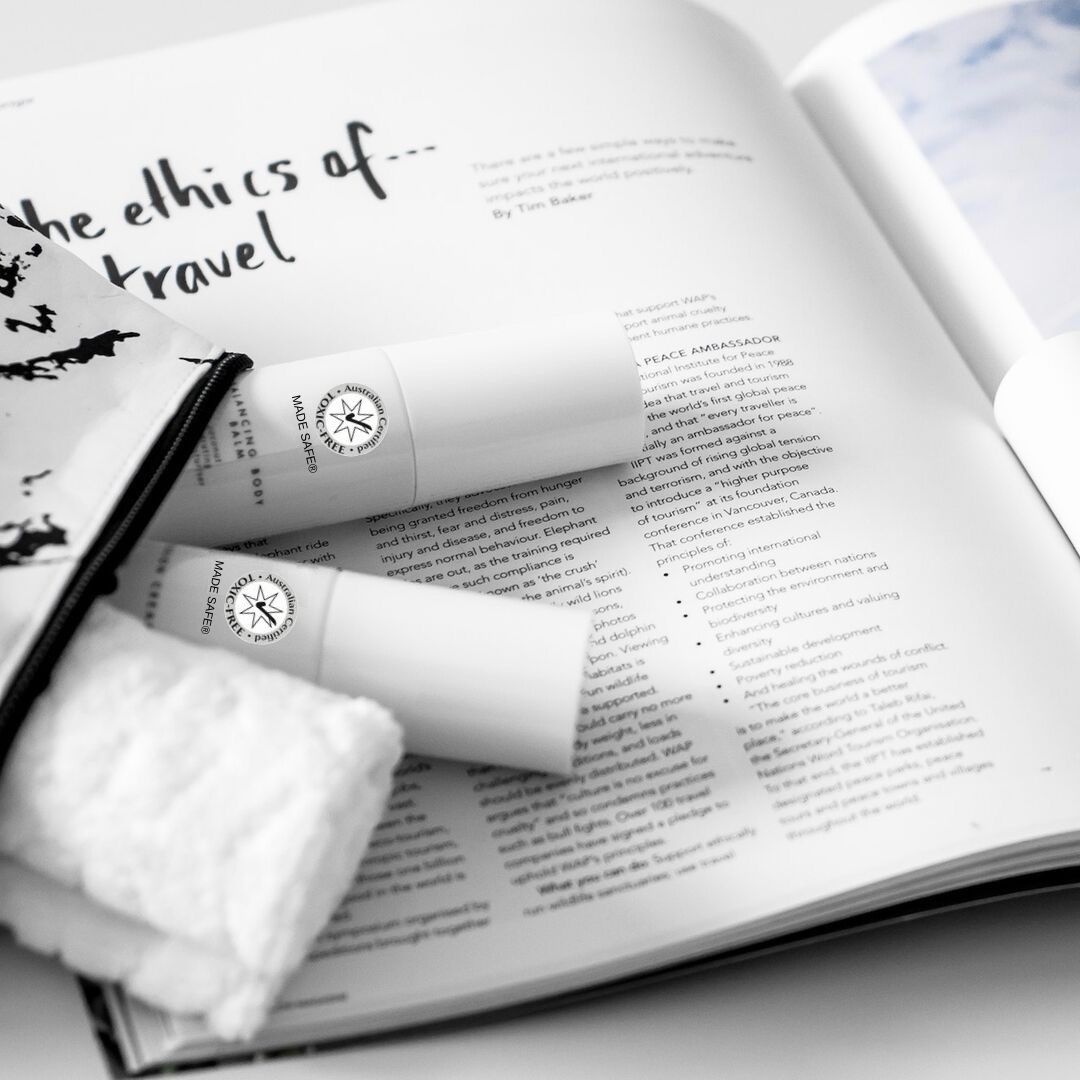 he ethics of...
travel
There are a few simple ways to make
sure your next international adventure
impacts the world positively.
By Tim Baker
hat support WAP's
port animal cruelty
ent humane practices.
A PEACE AMBASSADOR
tional Institute for Peace
ourism was founded in 1988
dea that travel and tourism
the world's first global peace
, and that "every traveller is
ially an ambassador for peace".
IIPT was formed against a
background of rising global tension
and terrorism, and with the objective
to introduce a "higher purpose
of tourism" at its foundation
conference in Vancouver, Canada.
That conference established the
principles of:
• Promoting international
understanding
• Collaboration between nations
• Protecting the environment and
biodiversity
• Enhancing cultures and valuing
diversity
• Sustainable development
• Poverty reduction
• And healing the wounds of conflict.
"The core business of tourism
is to make the world a better
place," according to Taleb Rifai,
the Secretary-General of the United
Nations Word Tourism Organisation.
To that end, the IIPT has established
designated peace parks, peace
tours and peace towns and villages
throughout the world.
ALANCING BODY
BALM
MADE SAFE®
Australian Certified
TOXIC-FREE
MADE SAFE®
Australian Certified
TOXIC-FREE
being granted freedom from hunger
and thirst, fear and distress, pain,
injury and disease, and freedom to
express normal behaviour. Elephant
are out, as the training required
such compliance is
nown as 'the crush'
the animal's spirit).
wild lions
sons,
photos
nd dolphin
pon. Viewing
habitats is
un wildlife
supported.
ould carry no more
dy weight, less in
ditions, and loads
should be evenly distributed. WAP
argues that "culture is no excuse for
cruelty" and so condemns practices
such as bull fights. Over 100 travel
companies have signed a pledge to
uphold WAP's principles.
What you can do: Support ethically
run wildlife sanctuaries, use travel
phant ride
with
en the
tourism,
hose one billion
nd in the world is
mposium organised by
ations brought together